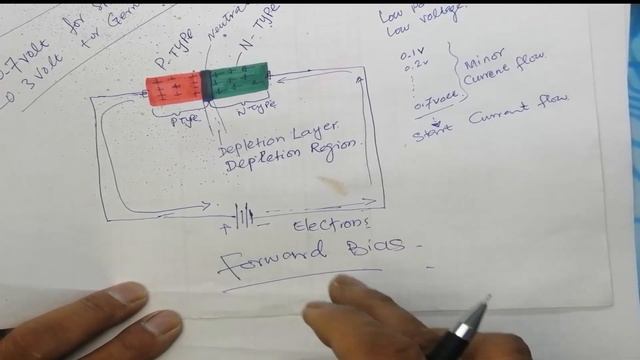 0.7volt for
0.3volt for Ger
P-TYPE
neutral
N-TYPE
P-TYPE
N-TYPE
Depletion Layer
Depletion Region.
+ -
Electrons
Forward Bias
Low
Low voltage
0.1v
0.2v
Minor
Current flow.
0.7volt
Start Current flow.